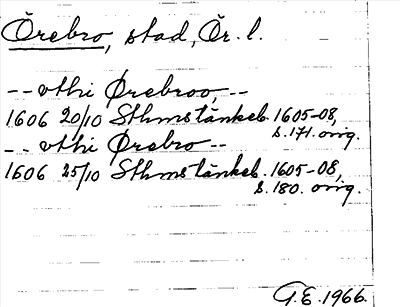 Örebro, stad, Ör. l.
-- vthi Ørebroo, --
1606 20/10 Sthms tänkeb. 1605-08,
s. 171. orig.
-- vthi Ørebro --
1606 25/10 Sthms tänkeb. 1605-08,
s. 180. orig.
G.E. 1966.